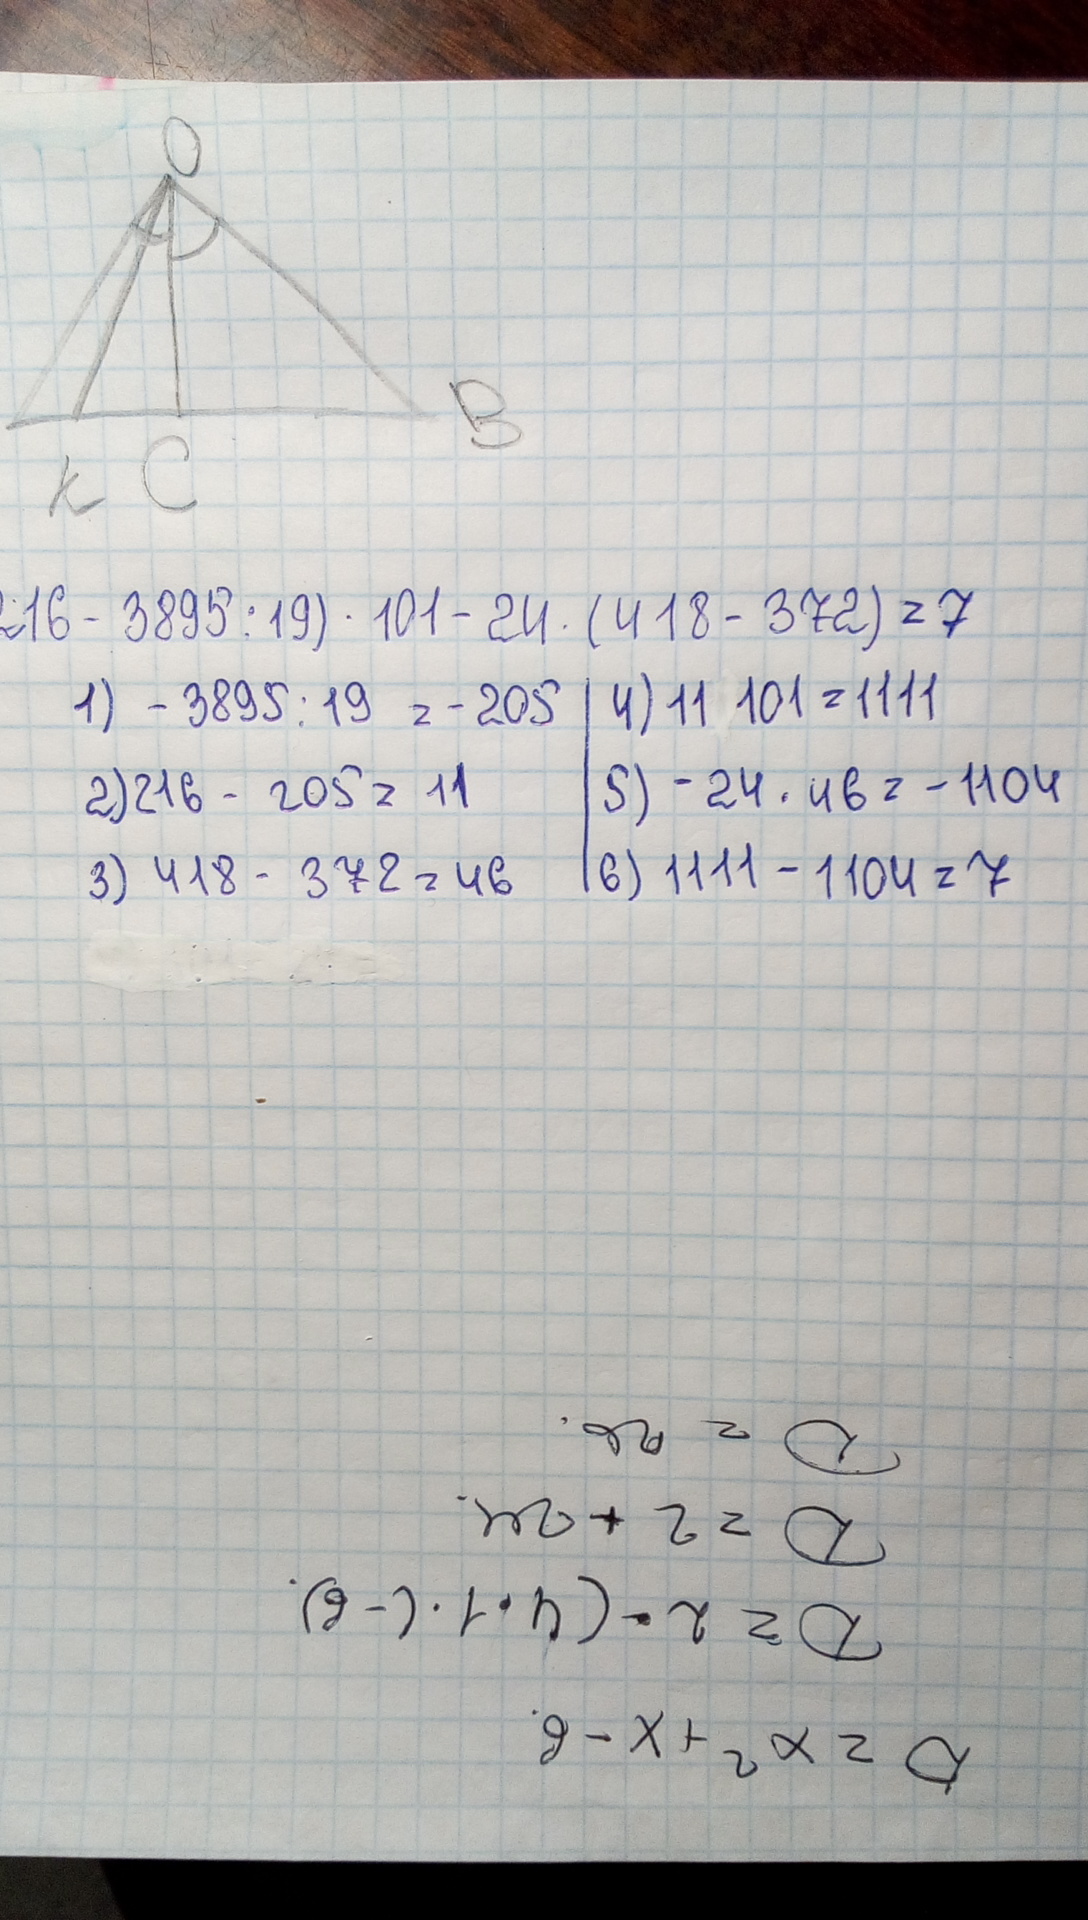 O
B
K C
216 - 3895 : 19) · 101 - 24 · (418 - 372) = 7
1) - 3895 : 19 = - 205
2) 216 - 205 = 11
3) 418 - 372 = 46
4) 11 101 = 1111
5) - 24 · 46 = - 1104
6) 1111 - 1104 = 7
D = x² + x - 6.
D = 2 - (4 · 1 · (-6).
D = 2 + 24.
D = 26.